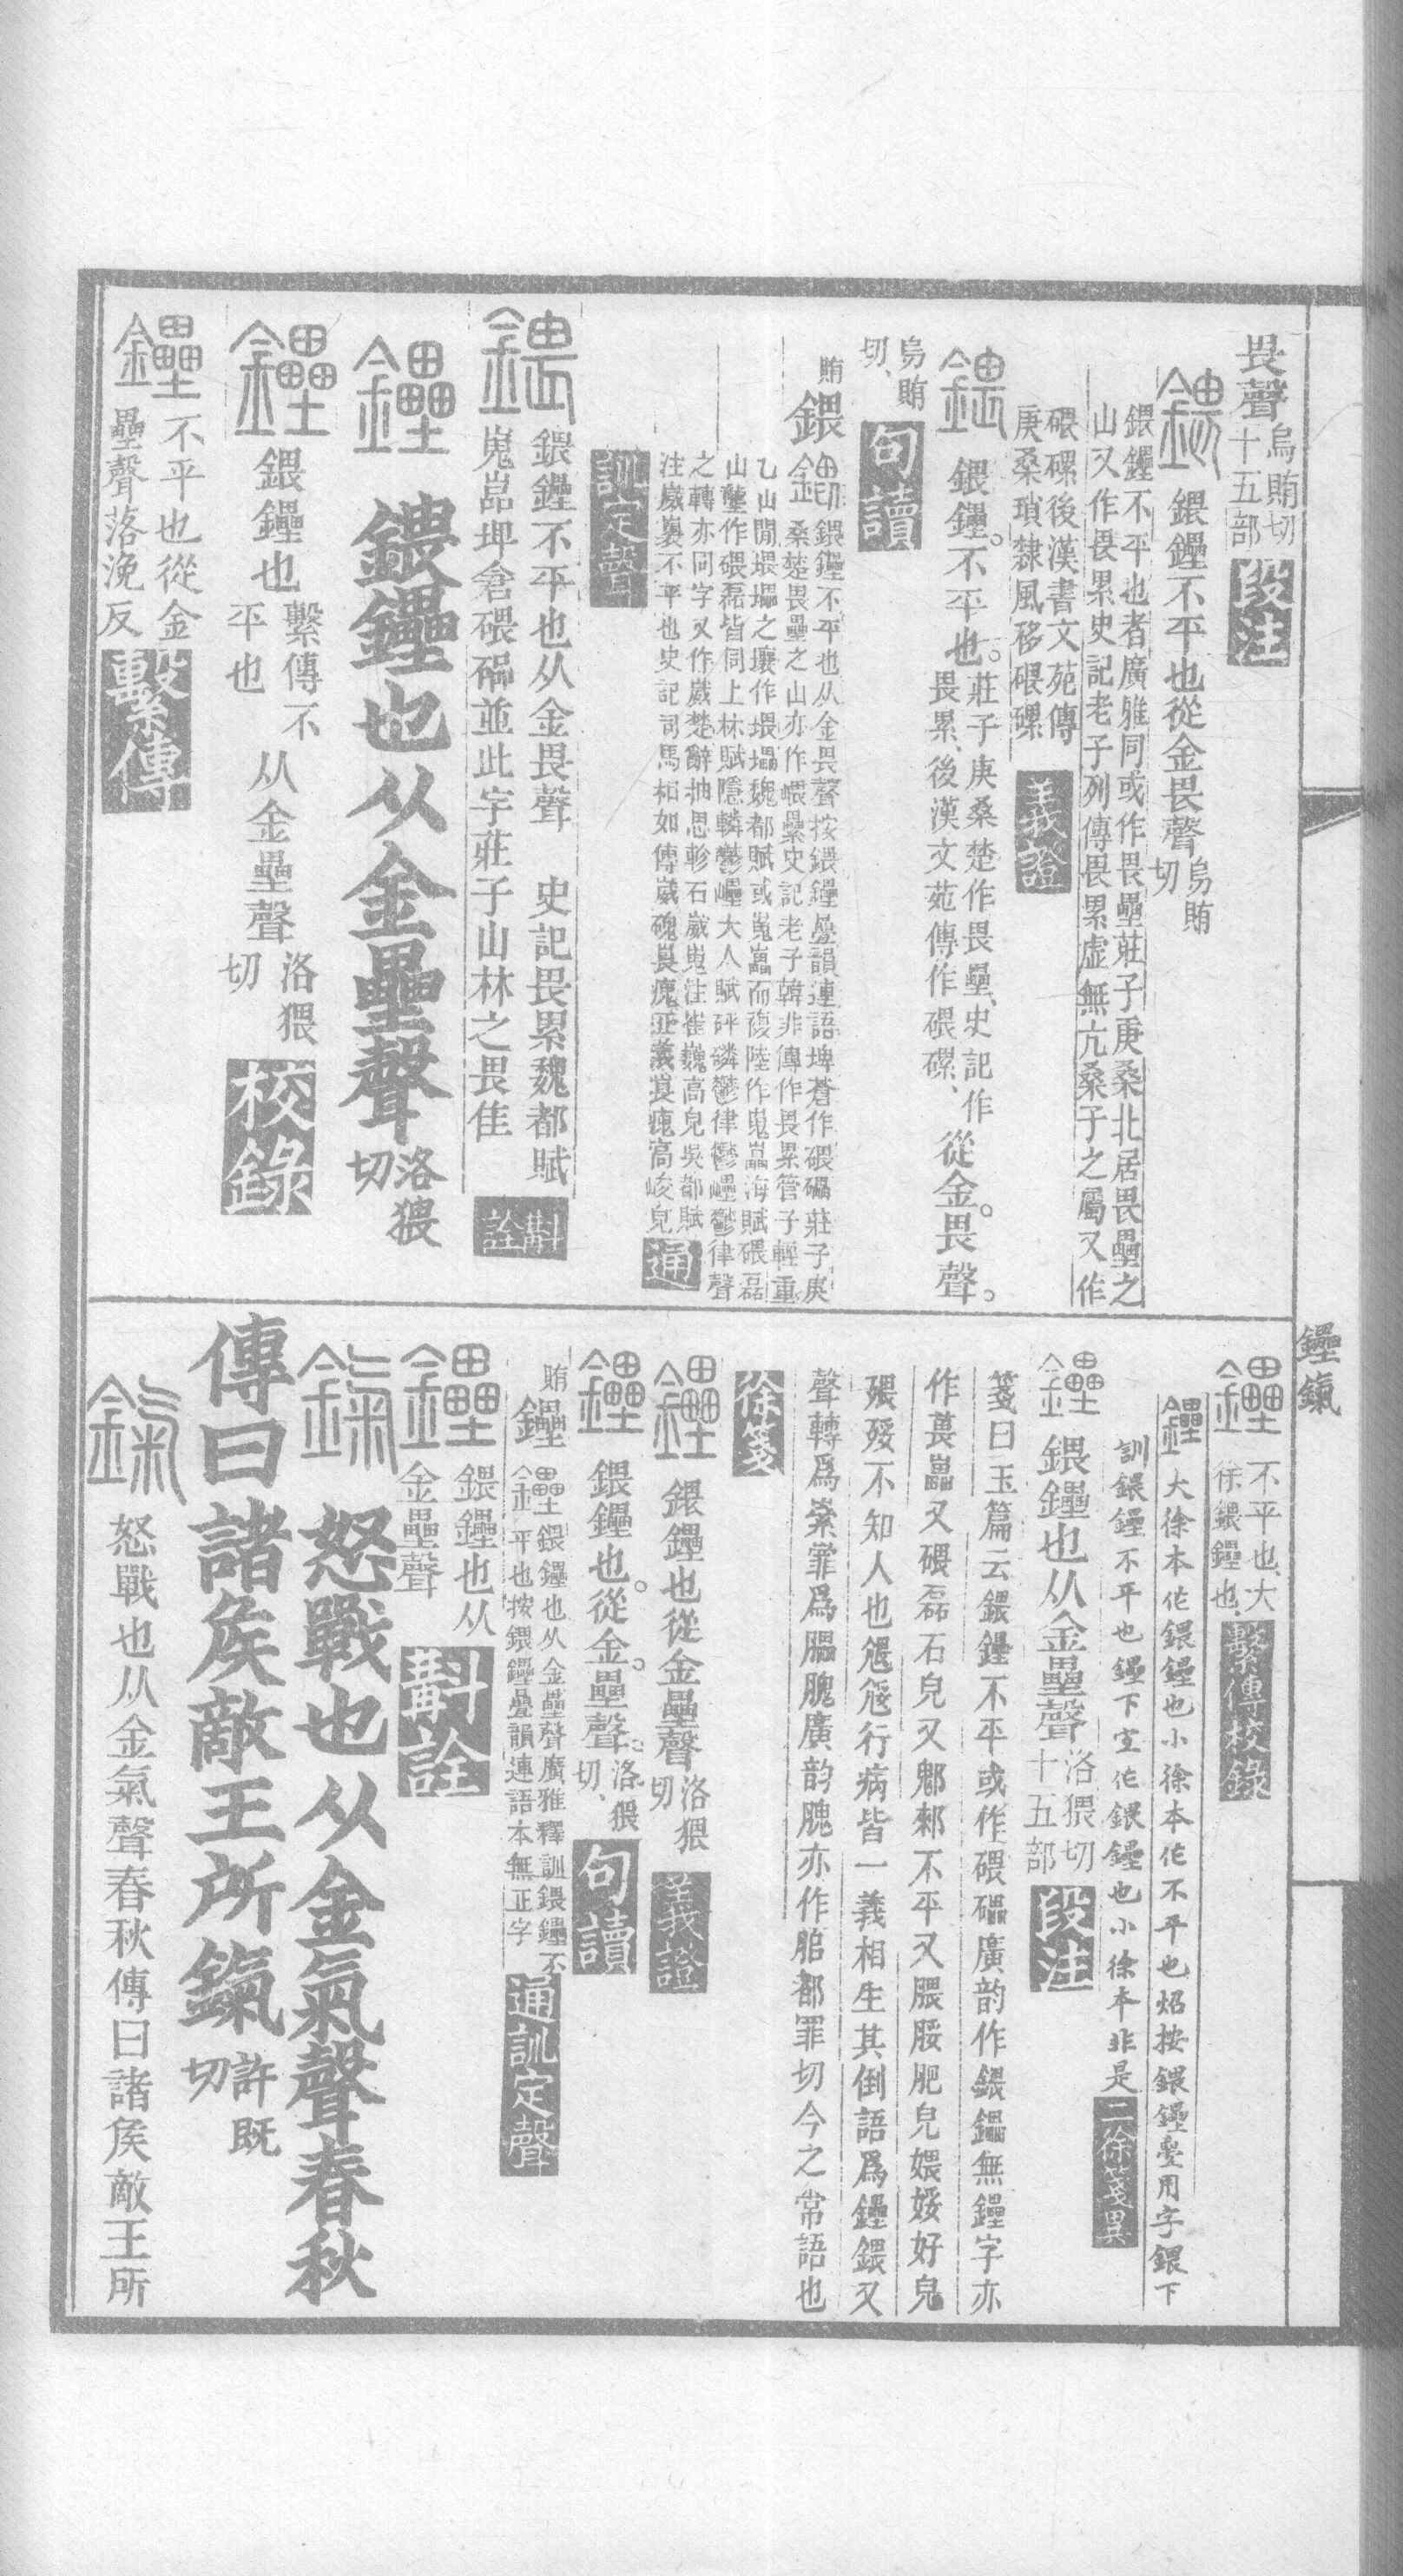 畏聲烏賄切十五部段注
鍡鑸不平也從金畏聲烏賄切
鍡鑸不平也者廣雅同或作畏壘莊子庚桑北居畏壘之
山又作畏累史記老子列傳畏累虛無亢桑子之屬又作
碨磥後漢書文苑傳
庚桑瑣隸風移碨磥義證
鍡鑸。不平也。莊子庚桑楚作畏壘、史記作畏累、後漢文苑傳作碨磥、從金。畏聲。
烏賄切、句讀
賄鍡
鍡鑸不平也从金畏聲按鍡鑸疊韻連語埤蒼作碨礧莊子庚
桑楚畏壘之山亦作喂壘史記老子韓非傳作畏累管子輕重
乙山閒㙗壘之壤作㙗壘魏都賦或嵬㠥而複陸作嵬㠥海賦碨磊
山壟作碨磊皆同上林賦隱轔鬱㠥大人賦砰磷鬱律鬱㠥鬱律聲
之轉亦同字又作崴楚辭抽思軫石崴嵬注崔巍高皃吳都賦
注崴裏不平也史記司馬相如傳崴磈㟪瘣正義㟪瘣高峻皃通
訓定聲
鍡鑸不平也从金畏聲 史記畏累魏都賦
嵬㠥埤倉碨㟪並此字莊子山林之畏隹斠詮
鑸鍡鑸也从金壘聲洛猥切
鍡鑸也繫傳不平也从金壘聲洛猥切校錄
不平也從金
壘聲落浼反繫傳
鑸鎎
不平也、大
徐鍡鑸也、繫傳校錄
大徐本作鍡鑸也小徐本作不平也炤按鍡鑸疊用字鍡下
訓鍡鑸不平也鑸下宜作鍡鑸也小徐本非是二徐箋異
鍡鑸也从金壘聲洛猥切十五部段注
箋曰玉篇云鍡鑸不平或作碨礧廣韵作鍡鑘無鑸字亦
作㟪㠥又碨磊石皃又鄎鄡不平又腲脮肥皃媁娞好皃
㱬㱣不知人也㾯㾼行病皆一義相生其倒語爲鑸鍡又
聲轉爲纍罪爲膃腲廣韵腲亦作䏽都罪切今之常語也
徐箋
鍡鑸也從金壘聲洛猥切義證
鍡鑸也。從金。壘聲。洛猥切、句讀
賄鑸
鍡鑸也从金壘聲廣雅釋訓鍡鑸不
平也按鍡鑸疊韻連語本無正字通訓定聲
鍡鑸也从
金壘聲斠詮
怒戰也从金氣聲春秋
傳曰諸矦敵王所鎎許既切
怒戰也从金氣聲春秋傳曰諸矦敵王所